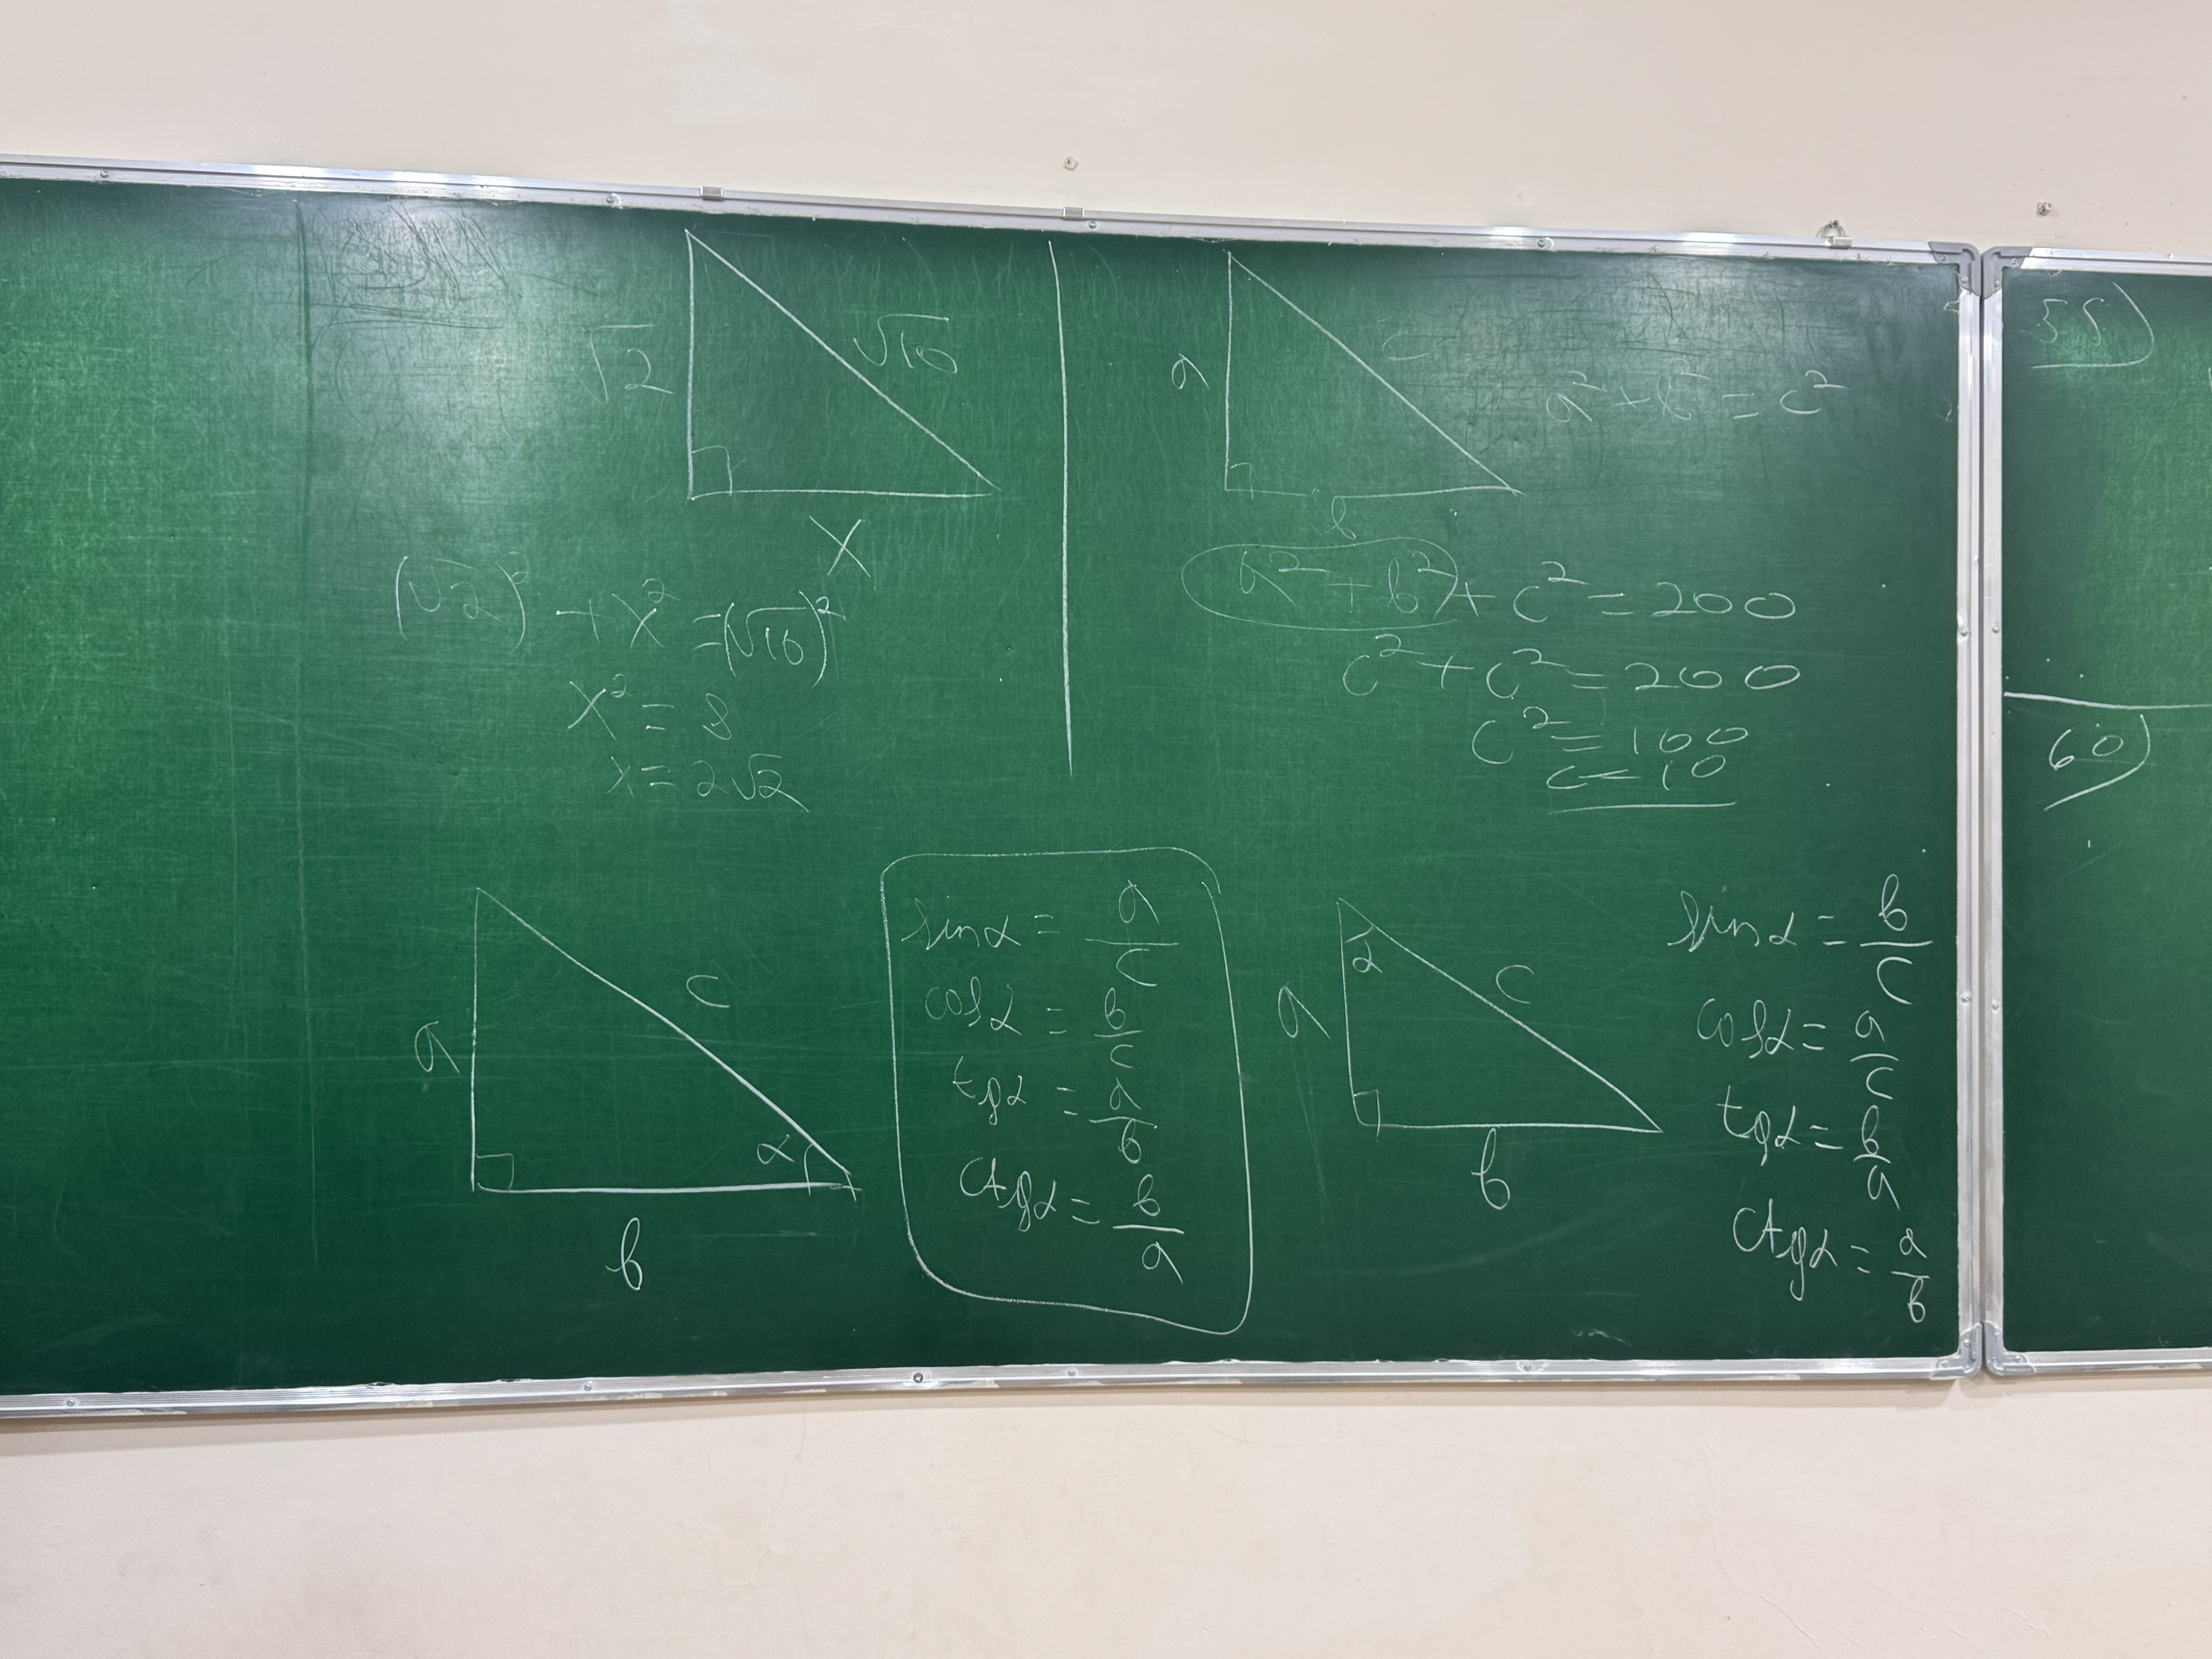 √2
√10
x
(√2)² + x² = (√10)²
x² = 8
x = 2√2
a
c
b
a² + b² = c²
a² + b² + c² = 200
c² + c² = 200
c² = 100
c = 10
a
c
α
b
sinα = a/c
cosα = b/c
tgα = a/b
ctgα = b/a
α
a
c
b
sinα = b/c
cosα = a/c
tgα = b/a
ctgα = a/b
55)
60)